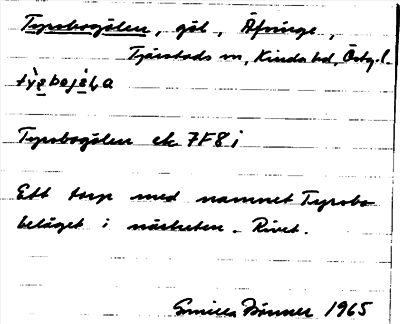 Tyrsbogölen, göl, Äfvinge,
Tjärstads sn, Kinda hd, Östg.l.
Tyrsbogölen ek 7F8i
Ett torp med namnet Tyrsbo
beläget i närheten. Rivet.
Gunilla Bönner 1965